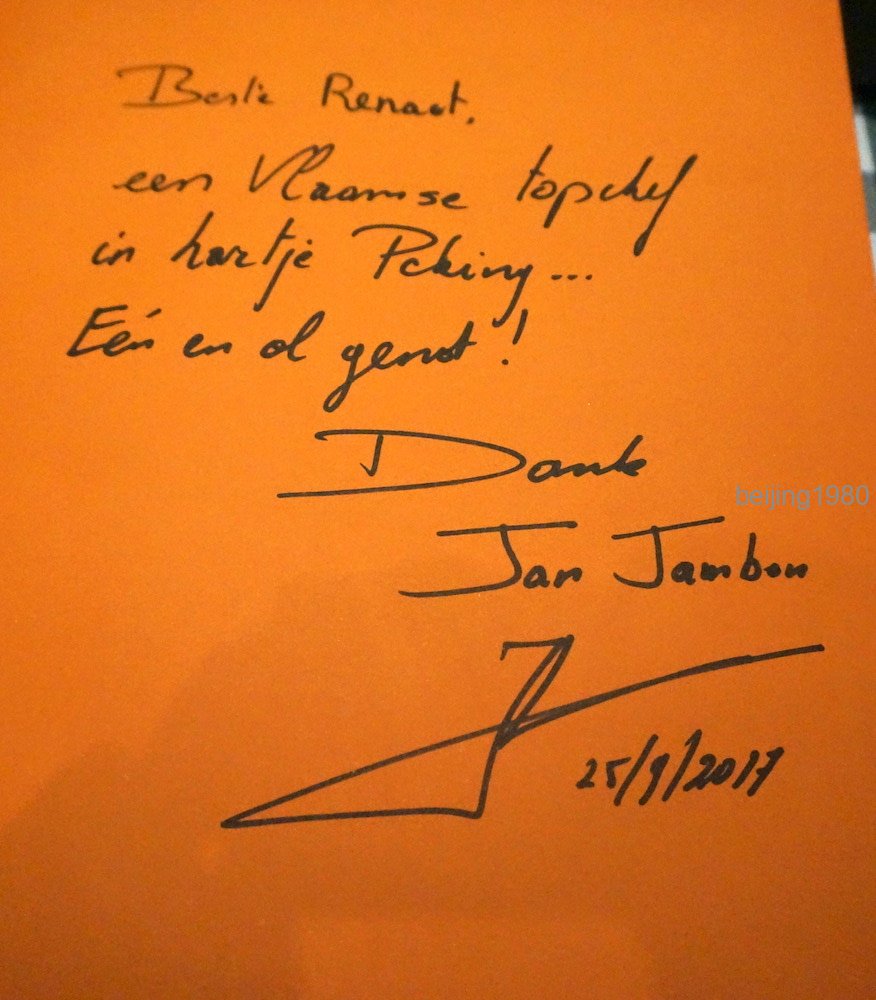 Beste Renaat,
een Vlaamse topchef
in hartje Peking...
Eén en al genot!
Dank
beijing1980
Jan Jambon
25/9/2017